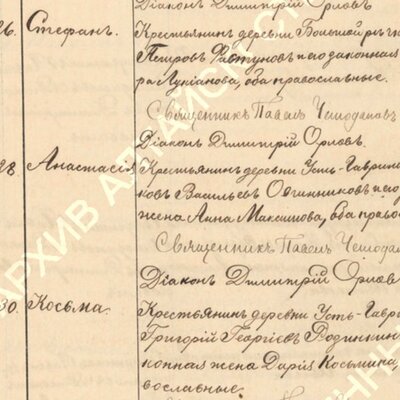 Діаконъ Димитрій Орловъ
26. Стефанъ. Крестьянинъ деревни Большой рѣчк
Петровъ и его законная
ра Лукіанова, оба православные.
Священникъ Павелъ Чемодановъ
Діаконъ Димитрій Орловъ.
28. Анастасія Крестьянинъ деревни Усть-Гаврин
ковъ Васильевъ Овчинниковъ и его
жена Анна Максимова, оба право
Священникъ Павелъ Чемодан
Діаконъ Димитрій Орловъ
30. Косьма. Крестьянинъ деревни Усть-Гаври
Григорій Георгіевъ Водинкин
конная жена Дарія Косьмина,
вославные.
АРХИВ АЛТАЙСК